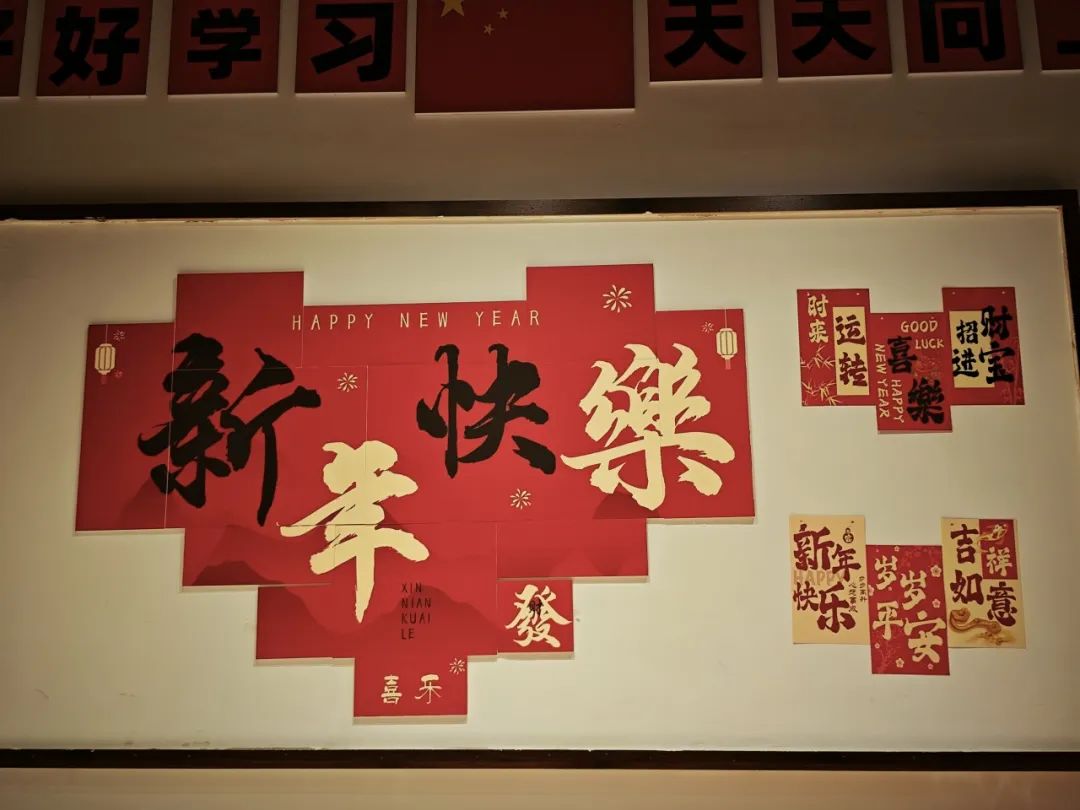 好学习 天天向
HAPPY NEW YEAR
新年快樂
XIN
NIAN
KUAI
LE
發
财
喜乐
时来
运转
GOOD
LUCK
喜樂
HAPPY
NEW YEAR
招财
进宝
新年
HAPPY
快乐
岁岁
平安
吉祥
如意